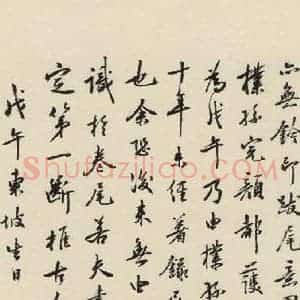 亦無鈐印跋尾
樸孫完顏都護
為戊午乃由樸孫
十年未經著錄
也余恐後來無由
識於卷尾若夫書
定第一斷推
戊午東坡生日
Shufaziliao.com